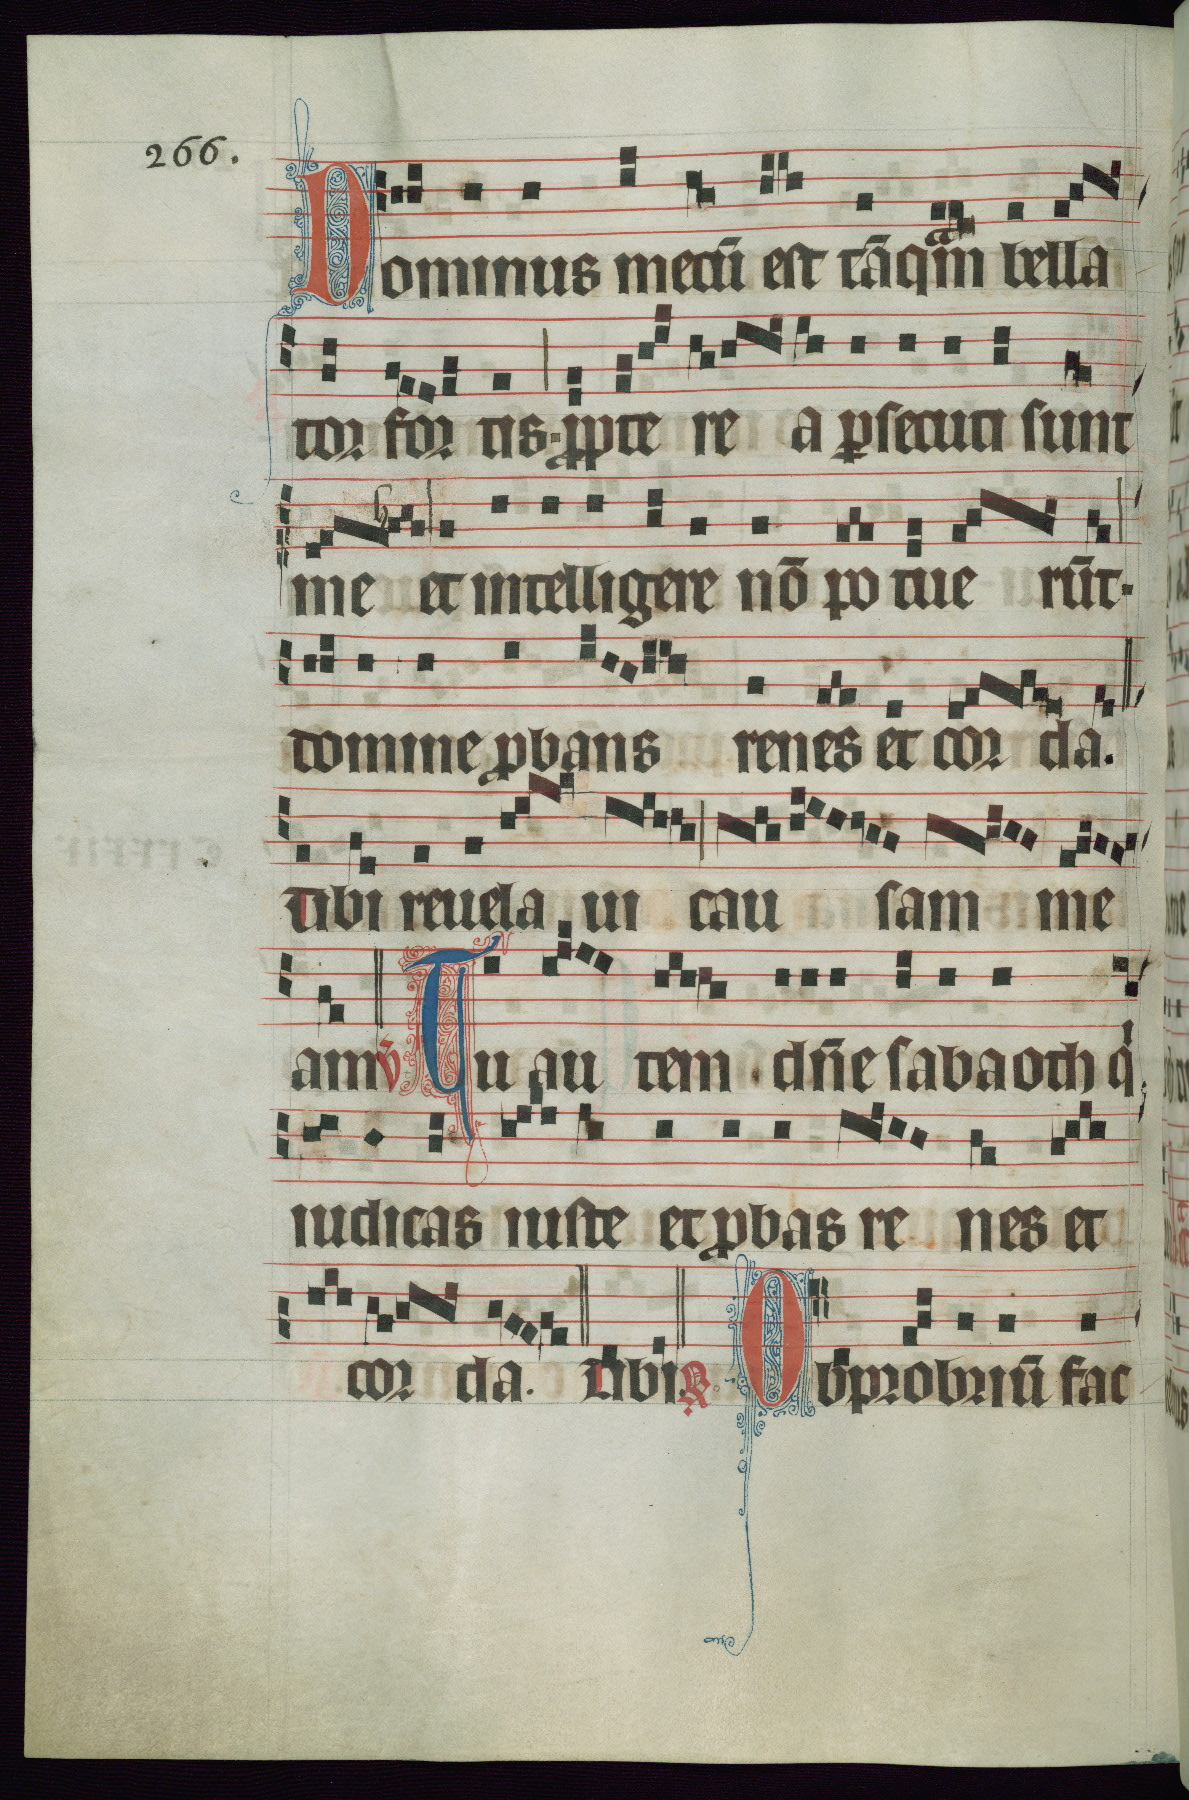 266.
Dominus mecū est tāq̄m bella
tor for tis· ꝓpte re a ꝑsecuti sunt
me et intelligere nō po tue rūt·
domine ꝓbans renes et cor da.
Tibi reuela ui cau sam me
am ℣ Tu au tem dn̄e sabaoth q̇
iudicas iuste et ꝓbas re nes et
cor da. Tibi. ℟ Obprobriū fac